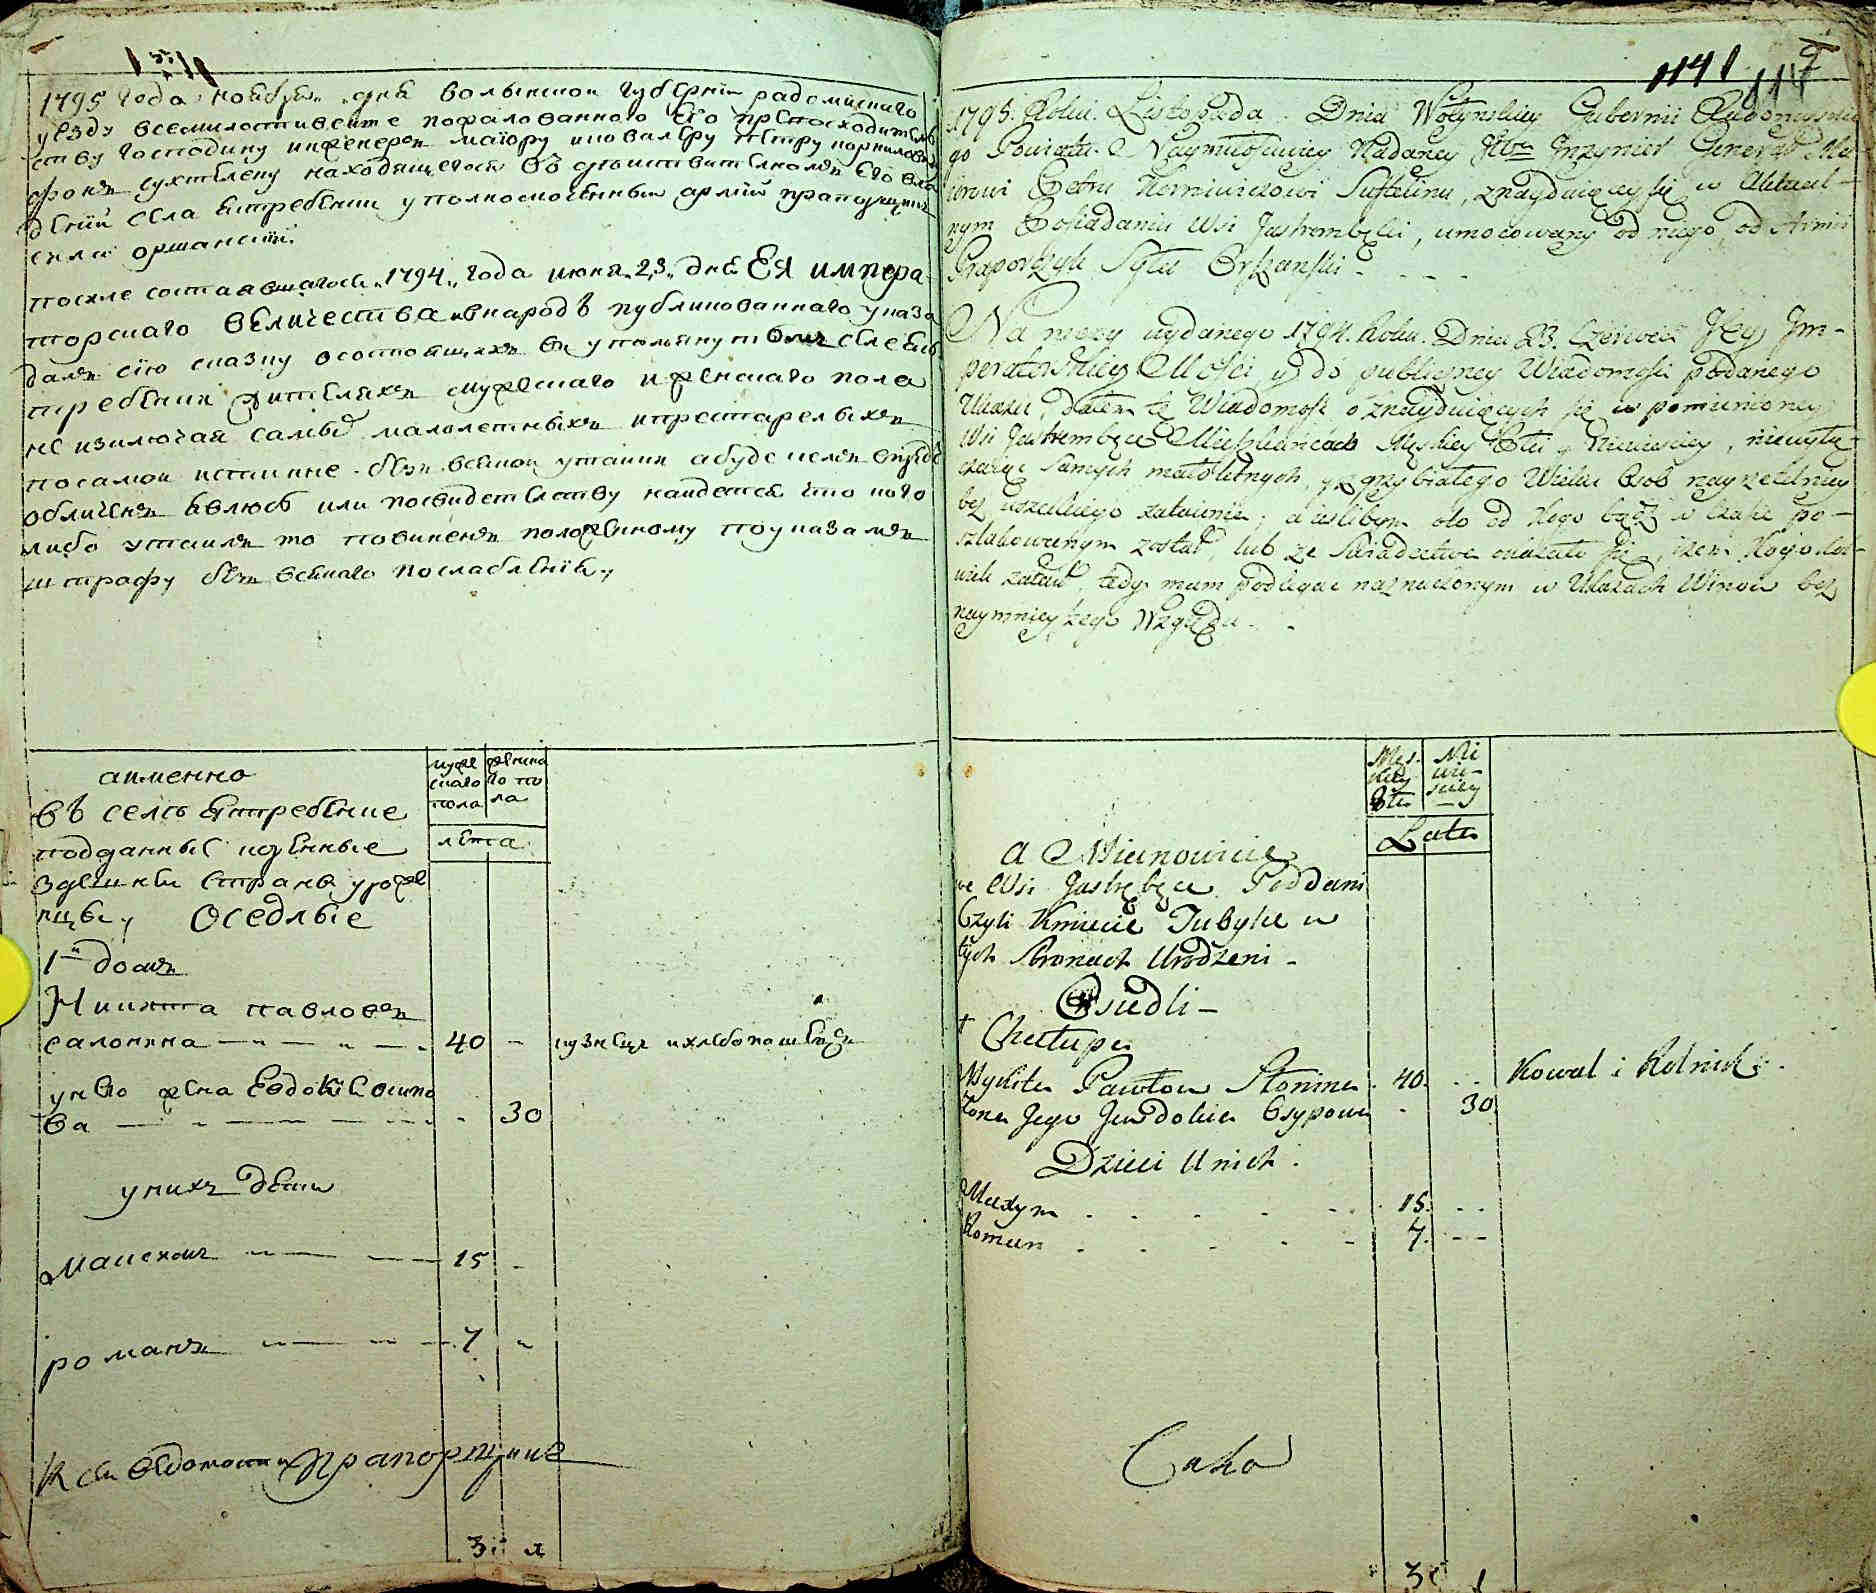 1795 года ноября дня волынской губернии радомыского
уезду всемилостивейше пожалованного его превосходитель
ству господину инженер маіору и ковалеру петру корниловичу
фон сухтелену находящегося въ действителномъ его вла
дении села ятребенки уполномоченный армии прапорщикъ
сила оршанский
после состоявшагося 1794 года июня 23 дня ЕЯ импера
торскаго величества и в народѣ публикованнаго указа
даю сию сказку о состоящихъ въ упомянутомъ селе яс
требенки жителяхъ мужескаго и женского пола
не изключая самыхъ малолетныхъ и престарелыхъ
по самой истинне безъ всякой утайки а буде кемъ впредь
обличенъ явлюсь или по свидетелству найдется что кого
либо утаилъ то повиненъ положенному по указамъ
штрафу безъ всякаго послабления
аименно
въ селѣ ятребенке
подданные
здешней страны уроже
нцы, оседлые
муже
скаго
пола
женска
го по
ла
лета
1й домъ
Никита павловъ
салонина 40 - кузнецъ и хлебопашецъ
у него жена Евдокия осипо
ва - 30
у нихъ дети
Максимъ 15 -
романъ 7
К сей ведомости прапорщикъ
3
1141
1795. Roku. Listopada. Dnia Wołynskiey Gubernii Radomyskie
go Powiatu Naymiłościwiey Nadaney JWu Inzynier Generał Ma
iorowi Petru Korniuiczowi Suftelinu, znayduiącey się w Aktual-
nym Posiadaniu Wsi Jastrembęki, umocowany od niego od Armii
Praporszczyk Syła Orszanski
Na mocy wydanego 1794. Roku. Dnia 23. Czerwca Jey Im-
peratorskiey Mości y do publiczney Wiadomości podanego
Ukazu, daiem tę Wiadomość o znayduiących się w pomienioney
Wsi Jastrembęce Mieszkańcach Męskiey Płci y Niewiesciey, niewyłą-
czaiąc samych małoletnych, y zgrzybiałego Wieku Osob nayrzetelniey
bez wszelkiego zataienia; a ieslibym oto od kogo bądź w czasie po-
szlakowanym został lub ze Swiadectwa okazało się, iżem kogokol-
wiek zataił, tedy mam podlegać naznaczonym w Ukazach Winom bez
naymnieyszego Względu
Męs-
kiey
Płci
Ni
wi-
sciey
Lata
a Mianowicie
we Wsi Jastrębęce Poddani
Czyli Kmiecie Tubylce w
tych Stronach Urodzeni -
Osiedli -
1 Chałupa
Mykita Pawłow Słonina 40. Kowal i Rolnik
Żona Jego Jewdokia Osypowa - 30
Dzieci Unich.
Maxym 15.
Roman 7.
3 1